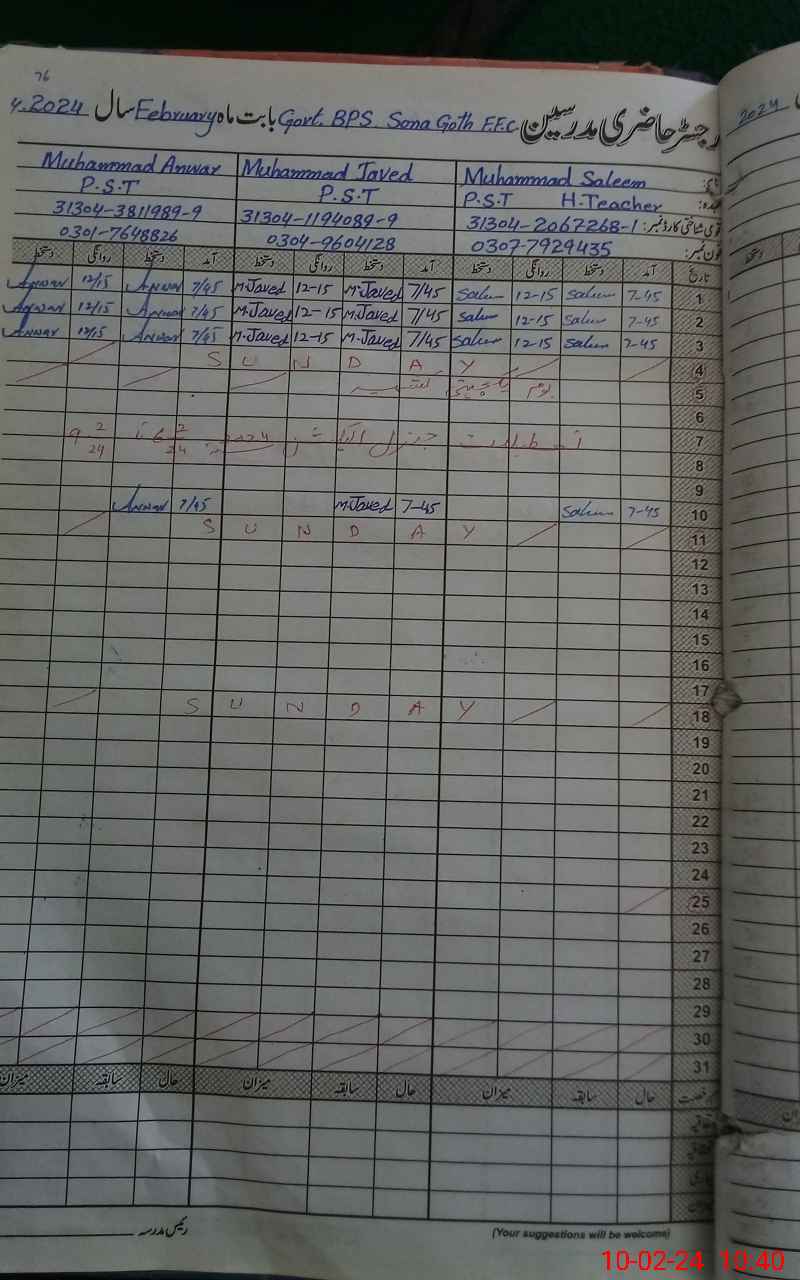 76
رجسٹر حاضری مدرسین Govt. BPS. Sona Goth F.F.C بابت ماہ February سال 2024
2024
نام: Muhammad Saleem Muhammad Javed Muhammad Anwar
عہدہ: P.S.T H.Teacher P.S.T P.S.T
قومی شناختی کارڈ نمبر: 31304-2067268-1 31304-1194089-9 31304-3811989-9
فون نمبر: 0307-7929435 0304-9604128 0301-7648826
تاریخ آمد دستخط روانگی دستخط آمد دستخط روانگی دستخط آمد دستخط روانگی دستخط
1 7-45 Saleem 12-15 Saleem 7/45 M.Javed 12-15 M.Javed 7/45 Anwar 12/15 Anwar
2 7-45 Saleem 12-15 Saleem 7/45 M.Javed 12-15 M.Javed 7/45 Anwar 12/15 Anwar
3 7-45 Saleem 12-15 Saleem 7/45 M.Javed 12-15 M.Javed 7/45 Anwar 12/15 Anwar
4 SUNDAY
5 یوم یکجہتی کشمیر
6
7 تعطیلات جنرل الیکشن 2024 6 2/24 تا 9 2/24
8
9
10 7-45 Saleem 7-45 M.Javed 7/45 Anwar
11 SUNDAY
12
13
14
15
16
17
18 SUNDAY
19
20
21
22
23
24
25
26
27
28
29
30
31
رخصت حال سابقہ میزان حال سابقہ میزان حال سابقہ میزان
رئیس مدرسہ
(Your suggestions will be welcome)
10-02-24 10:40